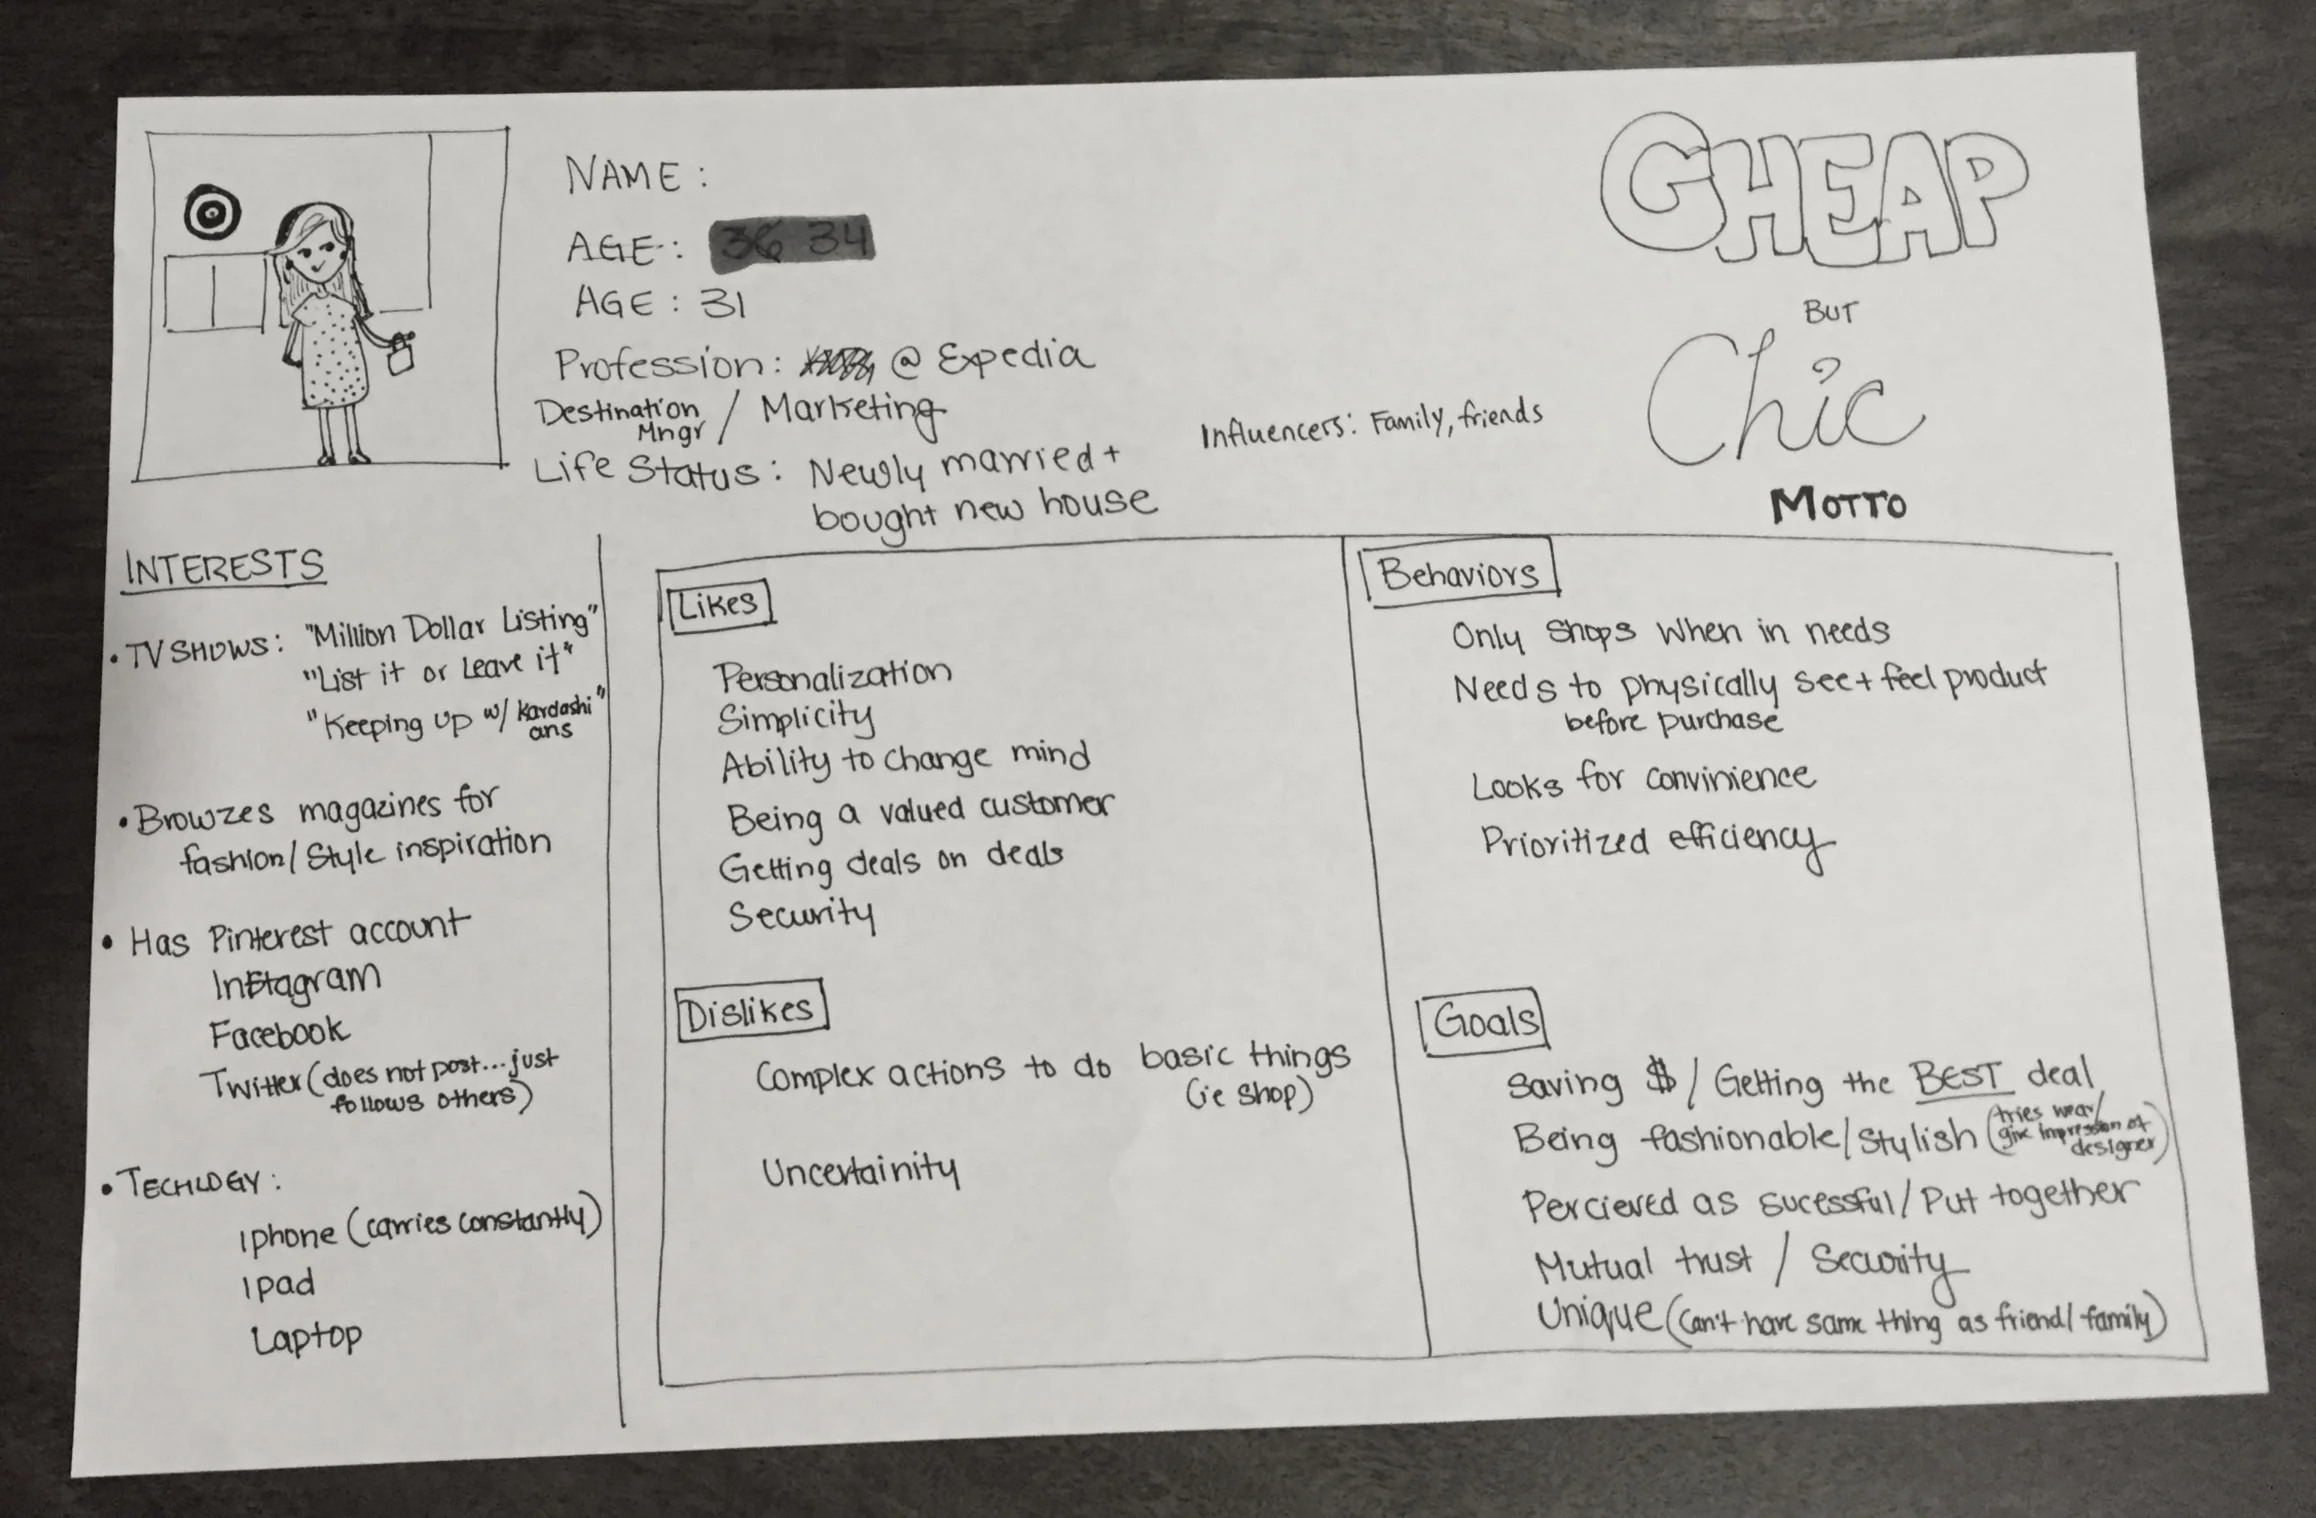 NAME :
AGE : 36 34
AGE : 31
Profession : @ Expedia
Destination Mngr / Marketing
Life Status : Newly married +
bought new house
Influencers: Family, friends
CHEAP
BUT
Chic
MOTTO
INTERESTS
• TV SHOWS : "Million Dollar Listing"
"List it or Leave it"
"Keeping up w/ Kardashi
ans"
• Browzes magazines for
fashion/ Style inspiration
• Has Pinterest account
Instagram
Facebook
Twitter (does not post... just
follows others)
• TECHLOGY :
iphone (carries constantly)
ipad
Laptop
Likes
Personalization
Simplicity
Ability to change mind
Being a valued customer
Getting deals on deals
Security
Dislikes
Complex actions to do basic things
(ie shop)
Uncertainity
Behaviors
Only shops when in needs
Needs to physically see + feel product
before purchase
Looks for convinience
Prioritized efficiency
Goals
Saving $ / Getting the BEST deal
Being fashionable/Stylish (tries wear/
give impression of
designer)
Percieved as sucessful / Put together
Mutual trust / Security
Unique (can't have same thing as friend/ family)